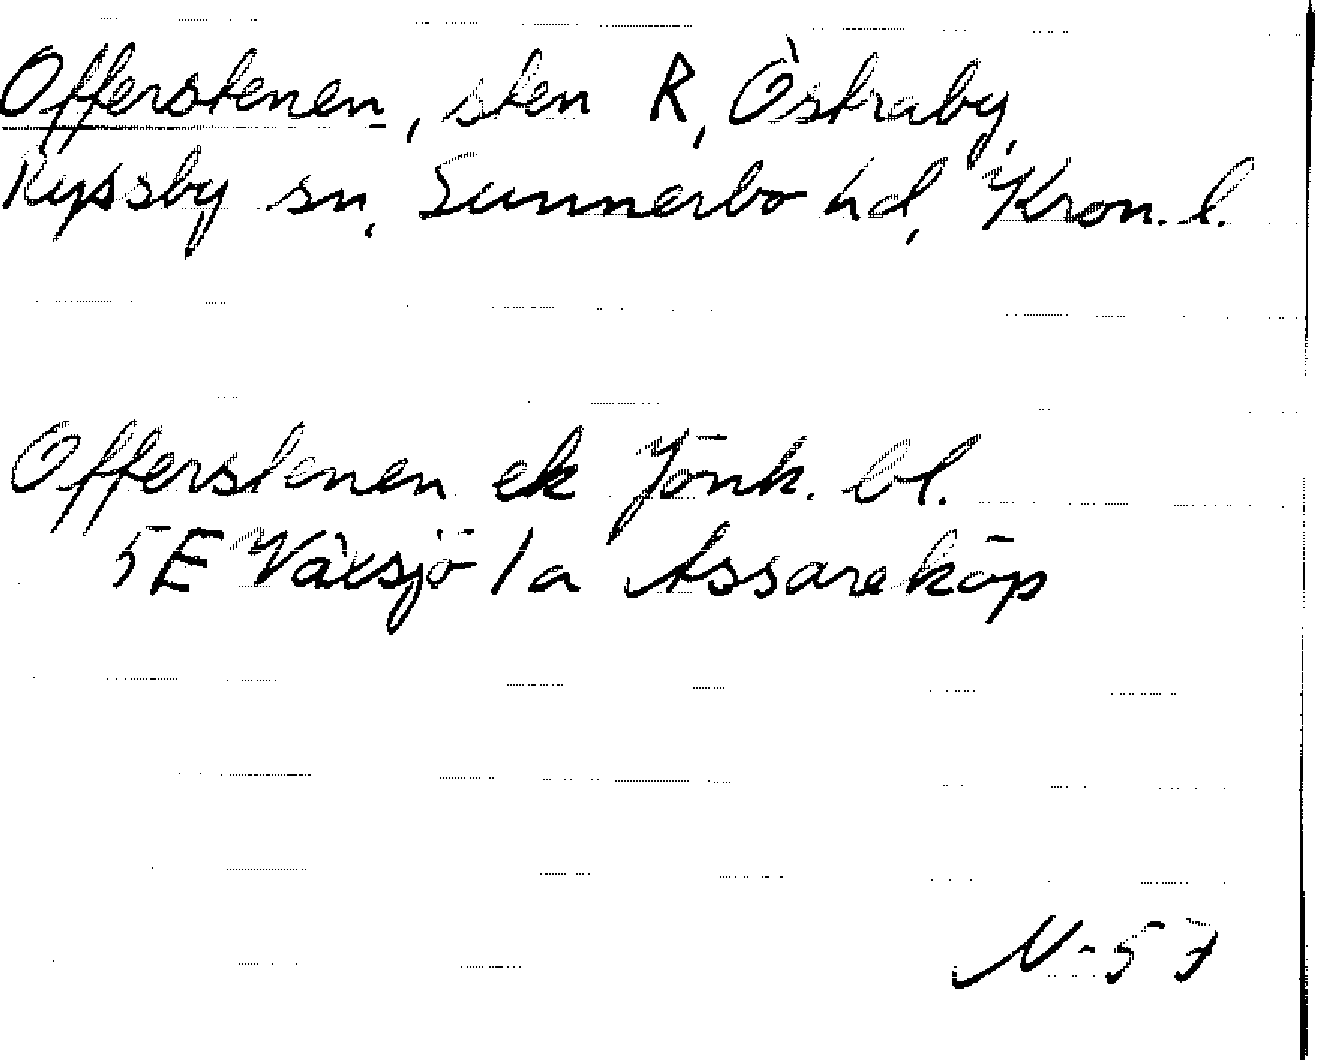 Offerstenen, sten R, Östraby,
Ryssby sn, Sunnerbo hd, Kron. l.
Offerstenen ek Jönk. bl.
5E Växsjö 1a Assareköp
N-57